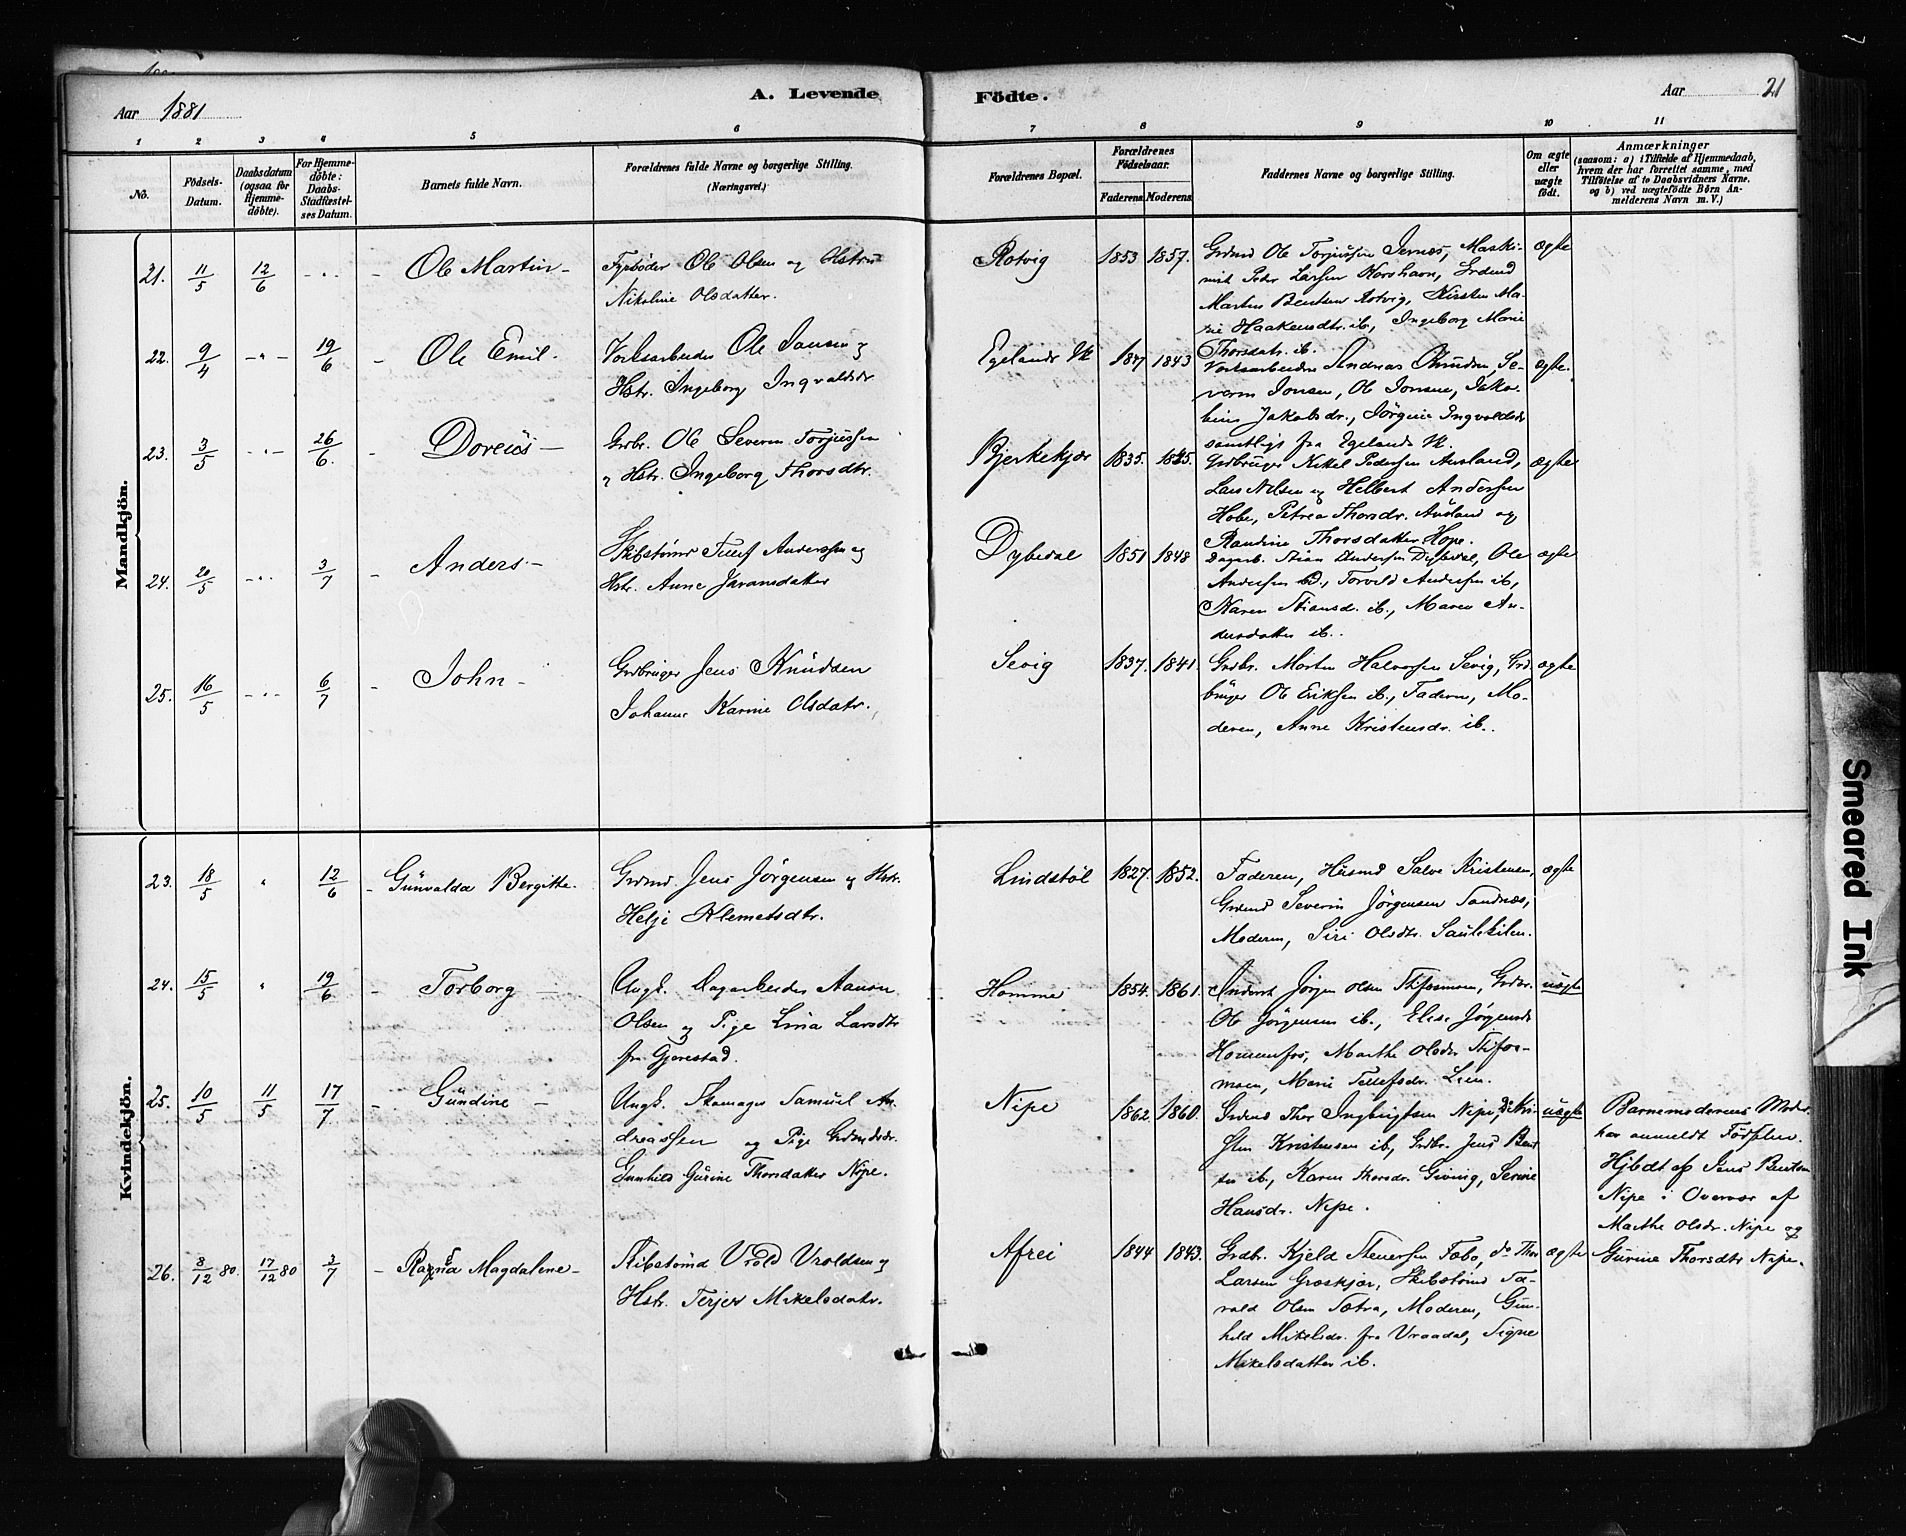 Aar 1881
A. Levende Födte.
Aar 21
1 2 3 4 5 6 7 8 9 10 11
No.
Födsels-Datum.
Daabsdatum (ogsaa for Hjemme-döbte).
For Hjemme-döbte: Daabs-Stadfæstel-ses Datum.
Barnets fulde Navn.
Forældrenes fulde Navne og borgerlige Stilling. (Næringsvei.)
Forældrenes Bopæl.
Forældrenes Födselsaar.
Faderens. Moderens.
Faddernes Navne og borgerlige Stilling.
Om ægte eller uægte födt.
Anmærkninger
(saasom: a) i Tilfælde af Hjemmedaab,
hvem der har forrettet samme, med
Tilföielse af to Daabsvidners Navne.
og b) ved uægtefödte Börn An-
melderens Navn m. V.)
Mandkjön.
21. 11/5 12/6 - " - - Ole Martin -
Fyrbøder Ole Olsen og Hstru
Nikoline Olsdatter.
Rotvig 1853 1857.
Grdmd Ole Torjussen Jernæs, Maski-
nist Peder Larsen Korshavn, Grdmd
Martin Bentsen Rotvig, Kirsten Ma-
rie Haakensdtr. ib., Ingeborg Marie
Thorsdatr. ib.
ægte
22. 9/4 - " - 19/6 - Ole Emil.
Verksarbeider Ole Jonsen og
Hstr. Ingeborg Ingvaldsdr
Egelands Vk 1847 1843
Verksarbeiderne Andreas Knudsen, Se-
verin Jonsen, Ole Jonsen, Jako-
bine Jakobsdr., Jørgine Ingvaldsdr
samtlige fra Egelands Vk.
ægte.
23. 3/5 - " - 26/6. - Doreus -
Grbr. Ole Severin Torjussen
og Hstr. Ingeborg Thorsdtr.
Bjerkekjær 1835. 1845.
Grdbruger Nikel Pedersen Ausland,
Lars Nilsen og Helbert Andersen
Hobe, Petrea Thorsdr. Ausland og
Randine Thorsdatter Hope.
ægte
24. 20/5 - " - 3/7 - Anders -
Skibstømr Tellef Anderssen og
Hstr. Anne Jøransdatter
Dybedal 1851 1848
Dagarb. Stian Andersen Dybedal, Ole
Andersen ib., Torvild Andersen ib,
Maren Stiansdr. ib., Maren An-
dersdatter ib.
ægte
25. 16/5 - " - 6/7 - John -
Grdbruger Jens Knudsen
Johanne Karine Olsdatr.
Sevig 1837. 1841.
Grdbr. Morten Halvorsen Sevig, Grd-
bruger Ole Eriksen ib., Faderen, Mo-
deren, Anne Kristensdr. ib.
ægte
Kvindekjön.
23. 18/5 " 12/6 - Gunvalda Bergitte.
Grdmd. Jens Jørgensen og Hstr.
Helje Klemetsdtr.
Lindstøl 1827. 1852.
Faderen, Husmd Salve Kristensen,
Grdmd Severin Jörgensen Sandnæs,
Moderen, Siri Olsdtr. Saulekilen.
ægte
24. 15/5 " 19/6 - Torborg -
Ungk. Dagarbeider Aanon
Olsen og Pige Lina Larsdtr
fra Gjerestad.
Homme 1854. 1861.
Inderst Jörgen Olsen Stifosmoen, Grdbr.
Ole Jörgensen ib., Elise Jørgensdr
Hommefos, Marthe Olsdr Stifos-
moen, Marie Tellefsdr. Lien.
uægte
25. 10/5 11/5 17/7 - Gundine -
Ungk. Skomager Samuel An-
dreassen og Pige Grdmdsdr.
Gunhild Gurine Thorsdatter Nipe.
Nipe 1862. 1860.
Grdmd Thor Ingbrigtsen Nipe, do Kri-
sten Kristensen ib, Grdbr. Jens Bent-
sen ib, Karen Thorsdr. Giving, Serine
Hansdr. Nipe.
uægte
Barnemoderens Moder
har anmeldt Fødselen.
Hjbdt af Jens Bentsen
Nipe i Overvær af
Marthe Olsdr. Nipe og
Gurine Thorsdtr Nipe.
26. 8/12 80. 17/12 80 3/7 - Ragna Magdalene -
Skibstømd Vrold Vroldsen og
Hstr. Terjer Mikelsdatr.
Afrei 1844 1843.
Grdbr. Kjeld Stenersen Fæbo, do Thor
Larsen Groskjær, Skibstømd Ta-
rald Olsen Sætra, Moderen, Gun-
hild Mikelsdr. fra Vraadal, Signe
Mikelsdatter ib.
ægte
Smeared Ink